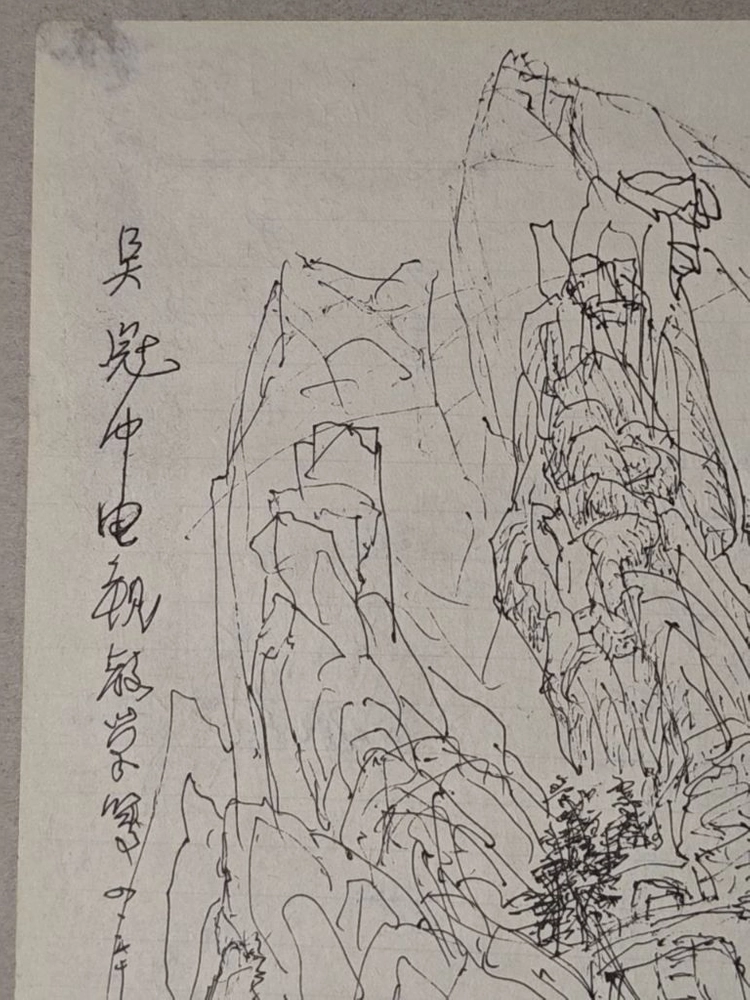 吴冠中电视教学写